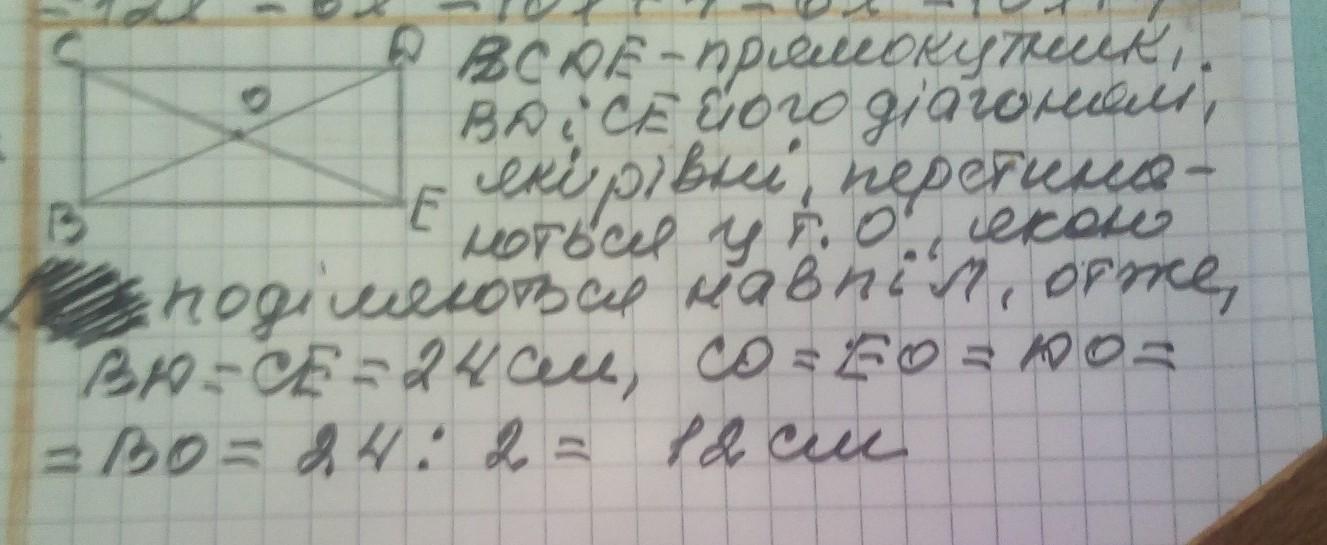 C D
O
B E
BCDE - прямокутник,
BD і CE його діагоналі,
які рівні, перетина-
ються у т. O, якою
поділяються навпіл, отже,
BD = CE = 24 см, CO = EO = DO =
= BO = 24 : 2 = 12 см